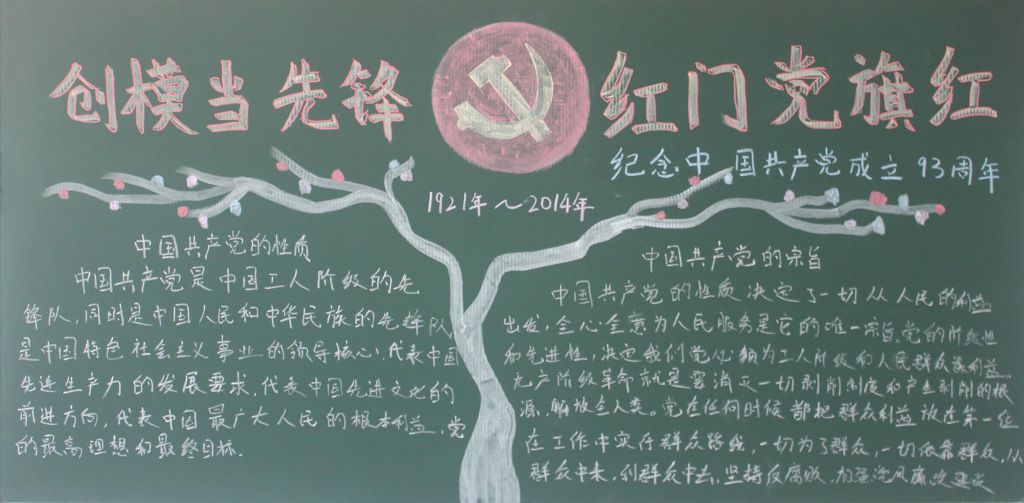 创模当先锋 红门党旗红
纪念中国共产党成立93周年
1921年~2014年
中国共产党的性质
中国共产党是中国工人阶级的先
锋队,同时是中国人民和中华民族的先锋队
是中国特色社会主义事业的领导核心,代表中国
先进生产力的发展要求,代表中国先进文化的
前进方向,代表中国最广大人民的根本利益,党
的最高理想和最终目标.
中国共产党的宗旨
中国共产党的性质决定了一切从人民的利益
出发,全心全意为人民服务是它的唯一宗旨,党的阶级性
和先进性,决定我们党必须为工人阶级和人民群众谋利益.
无产阶级革命就是要消灭一切剥削制度和产生剥削的根
源,解放全人类。党在任何时候都把群众利益放在第一位
在工作中实行群众路线,一切为了群众,一切依靠群众,从
群众中来,到群众中去,坚持反腐败,加强党风廉政建设